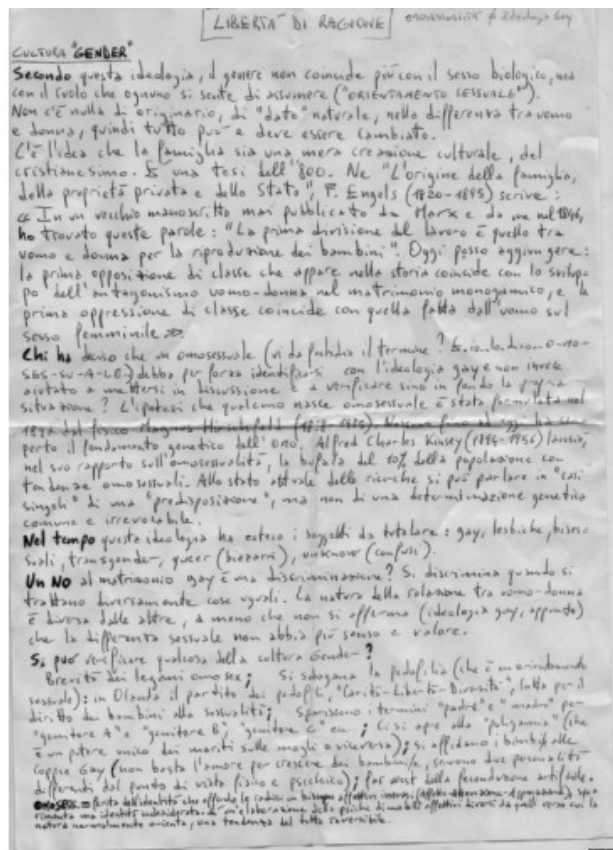 LIBERTÀ DI RAGIONE
OMOSESSUALITÀ ≠ Ideologia Gay
CULTURA "GENDER"
Secondo questa ideologia, il genere non coincide più con il sesso biologico, ma
con il ruolo che ognuno si sente di assumere ("ORIENTAMENTO SESSUALE").
Non c'è nulla di originario, di "dato" naturale, nella differenza tra uomo
e donna, quindi tutto può e deve essere cambiato.
C'è l'idea che la famiglia sia una mera creazione culturale, del
cristianesimo. È una tesi dell'800. Ne "L'origine della famiglia,
della proprietà privata e dello Stato", F. Engels (1820-1895) scrive:
« In un vecchio manoscritto mai pubblicato da Marx e da me nel 1846,
ho trovato queste parole: "La prima divisione del lavoro è quella tra
uomo e donna per la riproduzione dei bambini". Oggi posso aggiungere:
la prima opposizione di classe che appare nella storia coincide con lo svilup-
po dell'antagonismo uomo-donna nel matrimonio monogamico, e la
prima oppressione di classe coincide con quella fatta dall'uomo sul
sesso femminile ».
Chi ha deciso che un omosessuale (vi dà fastidio il termine? O-MO-
SES-SU-A-LE) debba per forza identificarsi con l'ideologia gay e non invece
aiutato a mettersi in discussione e a verificare sino in fondo la propria
situazione? L'ipotesi che qualcuno nasce omosessuale è stata formulata nel
dal fisico Magnus Hirschfeld Nessuno fino ad oggi ha sco-
perto il fondamento genetico dell'omo. Alfred Charles Kinsey (1894-1956) lanciò,
nel suo rapporto sull'omosessualità, la bufala del 10% della popolazione con
tendenze omosessuali. Allo stato attuale delle ricerche si può parlare in "casi
singoli" di una "predisposizione", ma non di una determinazione genetica
comune e irrevocabile.
Nel tempo questa ideologia ha esteso i soggetti da tutelare: gay, lesbiche, bises-
suali, transgender, queer (bizzarri), unknow (confusi).
Un No al matrimonio gay è una discriminazione? Si discrimina quando si
trattano diversamente cose uguali. La natura della relazione tra uomo-donna
è diversa dalle altre, a meno che non si afferma (ideologia gay, appunto)
che la differenza sessuale non abbia più senso e valore.
Si può verificare qualcosa della cultura Gender?
Brevità dei legami omosex; Si sdogana la pedofilia (che è un orientamento
sessuale): in Olanda il partito dei pedofili, "Carità-Libertà-Diversità", lotta per il
diritto dei bambini alla sessualità; Spariscono i termini "padre" e "madre" per
"genitore A" e "genitore B", "genitore C" ecc..; Ci si apre alla "poligamia" (che
è un potere unico dei mariti sulle mogli o viceversa); si affidano i bimbi alle
coppie Gay (non basta l'amore per crescere dei bambini, servono due personalità
differenti dal punto di vista fisico e psichico); far west della fecondazione artificiale.
OMOSEX = ferita dell'identità che affonda le radici in bisogni affettivi inevasi (Affetto-Attenzione-Approvazione),
una identità di mobili affettivi diversi da quelli verso cui la
natura normalmente orienta, una tendenza del tutto reversibile.